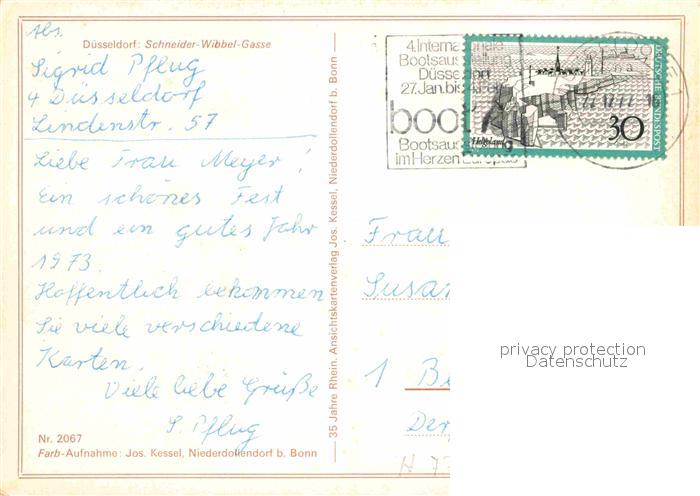 Abs.
Düsseldorf: Schneider-Wibbel-Gasse
Sigrid Pflug
4 Düsseldorf
Lindenstr. 57
Liebe Frau Meyer!
Ein schönes Fest
und ein gutes Jahr
1973.
Hoffentlich bekommen
Sie viele verschiedene
Karten.
Viele liebe Grüße
S. Pflug
Nr. 2067
Farb-Aufnahme: Jos. Kessel, Niederdollendorf b. Bonn
35 Jahre Rhein. Ansichtskartenverlag Jos. Kessel, Niederdollendorf b. Bonn
4. Internationale
Bootsausstellung
Düsseldorf
27. Jan. bis
boot
Bootsausstellung
im Herzen Europas
Helgoland
30
DEUTSCHE BUNDESPOST
Frau
Susan
1 Be
Der
H 77
privacy protection
Datenschutz